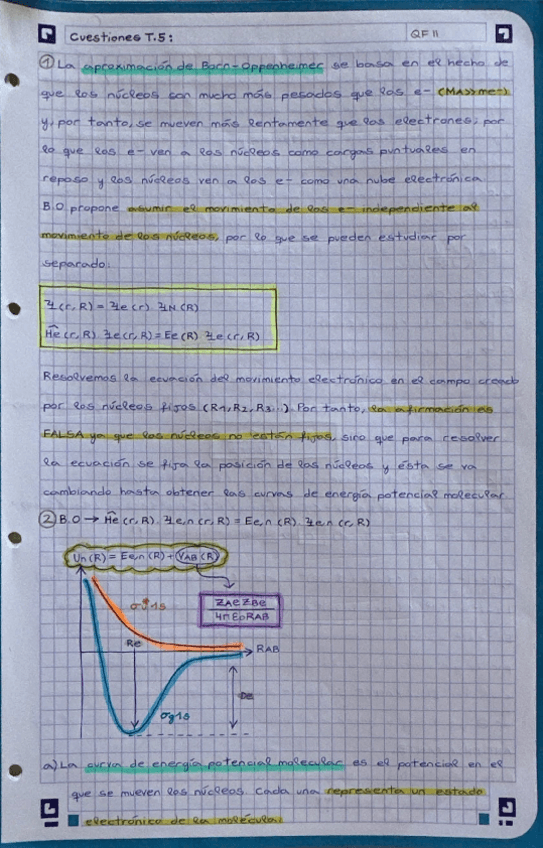 Cuestiones T.5:
QF II
① La aproximación de Born-Oppenheimer se basa en el hecho de
que los núcleos son mucho más pesados que los e- (MA>>me-)
y, por tanto, se mueven más lentamente que los electrones; por
lo que los e- ven a los núcleos como cargas puntuales en
reposo y los núcleos ven a los e- como una nube electrónica
B.O propone asumir el movimiento de los e- independiente al
movimiento de los núcleos, por lo que se pueden estudiar por
separado:
Ψ(r,R) = Ψe(r) ΨN(R)
Ĥe(r,R) Ψe(r,R) = Ee(R) Ψe(r,R)
Resolvemos la ecuación del movimiento electrónico en el campo creado
por los núcleos fijos (R1, R2, R3...) Por tanto, la afirmación es
FALSA ya que los núcleos no están fijos, sino que para resolver
la ecuación se fija la posición de los núcleos y ésta se va
cambiando hasta obtener las curvas de energía potencial molecular.
② B.O → Ĥe(r,R). Ψe,n(r,R) = Ee,n(R). Ψe,n(r,R)
Un(R) = Ee,n(R) + VAB(R)
ZAeZBe
4πE0RAB
σ*1s
Re
RAB
De
σg1s
a) La curva de energía potencial molecular es el potencial en el
que se mueven los núcleos. Cada una representa un estado
electrónico de la molécula.